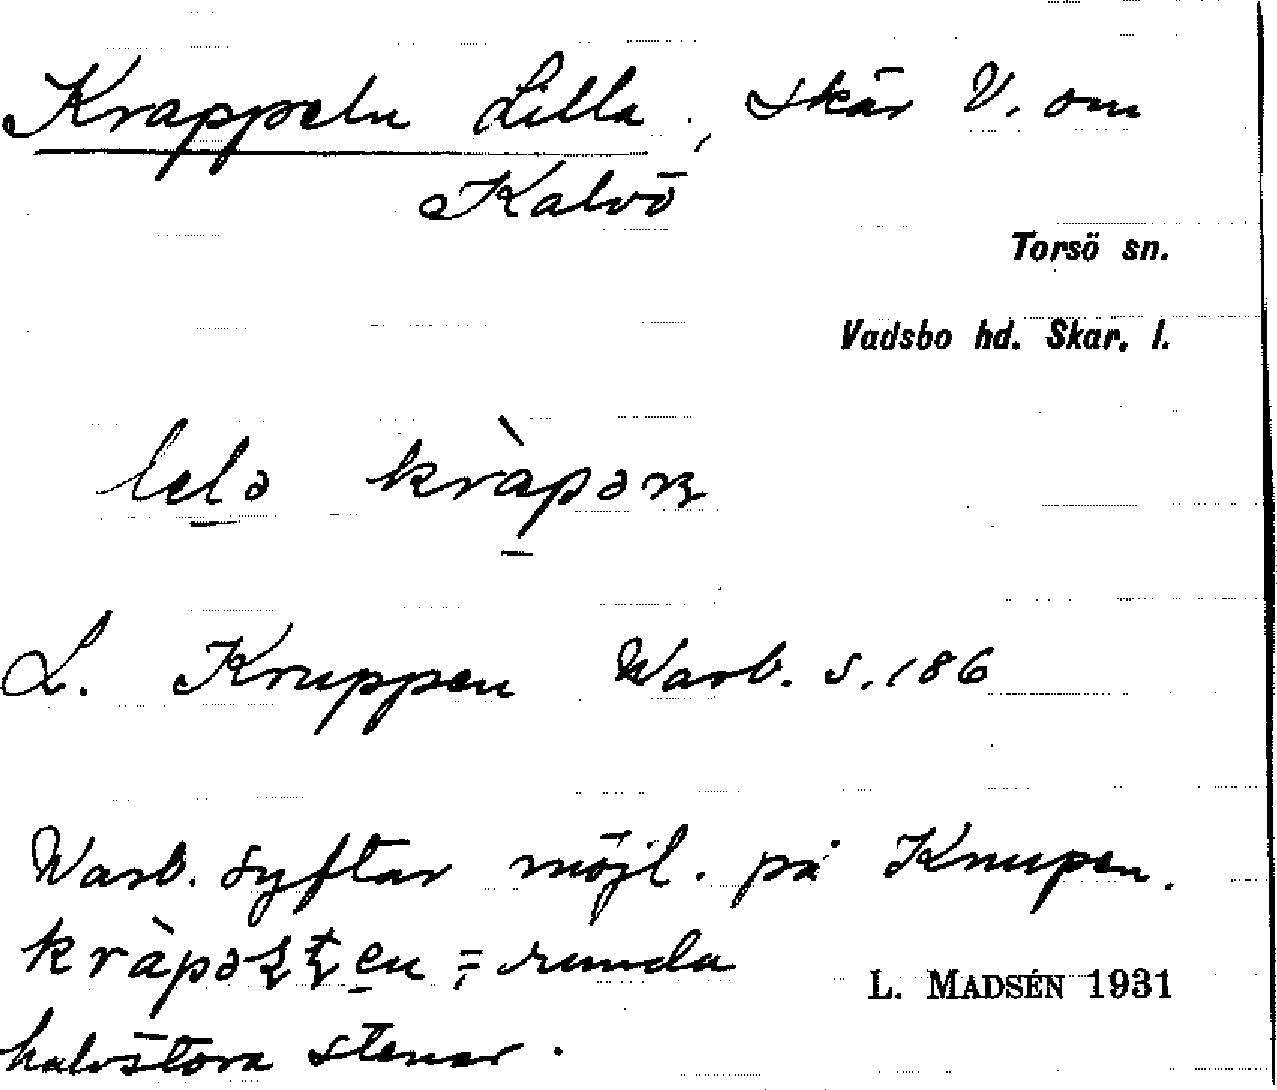 Krappeln Lilla, skär V. om
Kalvö
Torsö sn.
Vadsbo hd. Skar. l.
lelə kràpəɳ
L. Kruppen Warb. s. 186
Warb. syftar möjl. på Knupen.
runda
L. MADSÉN 1931
halvstora stenar.